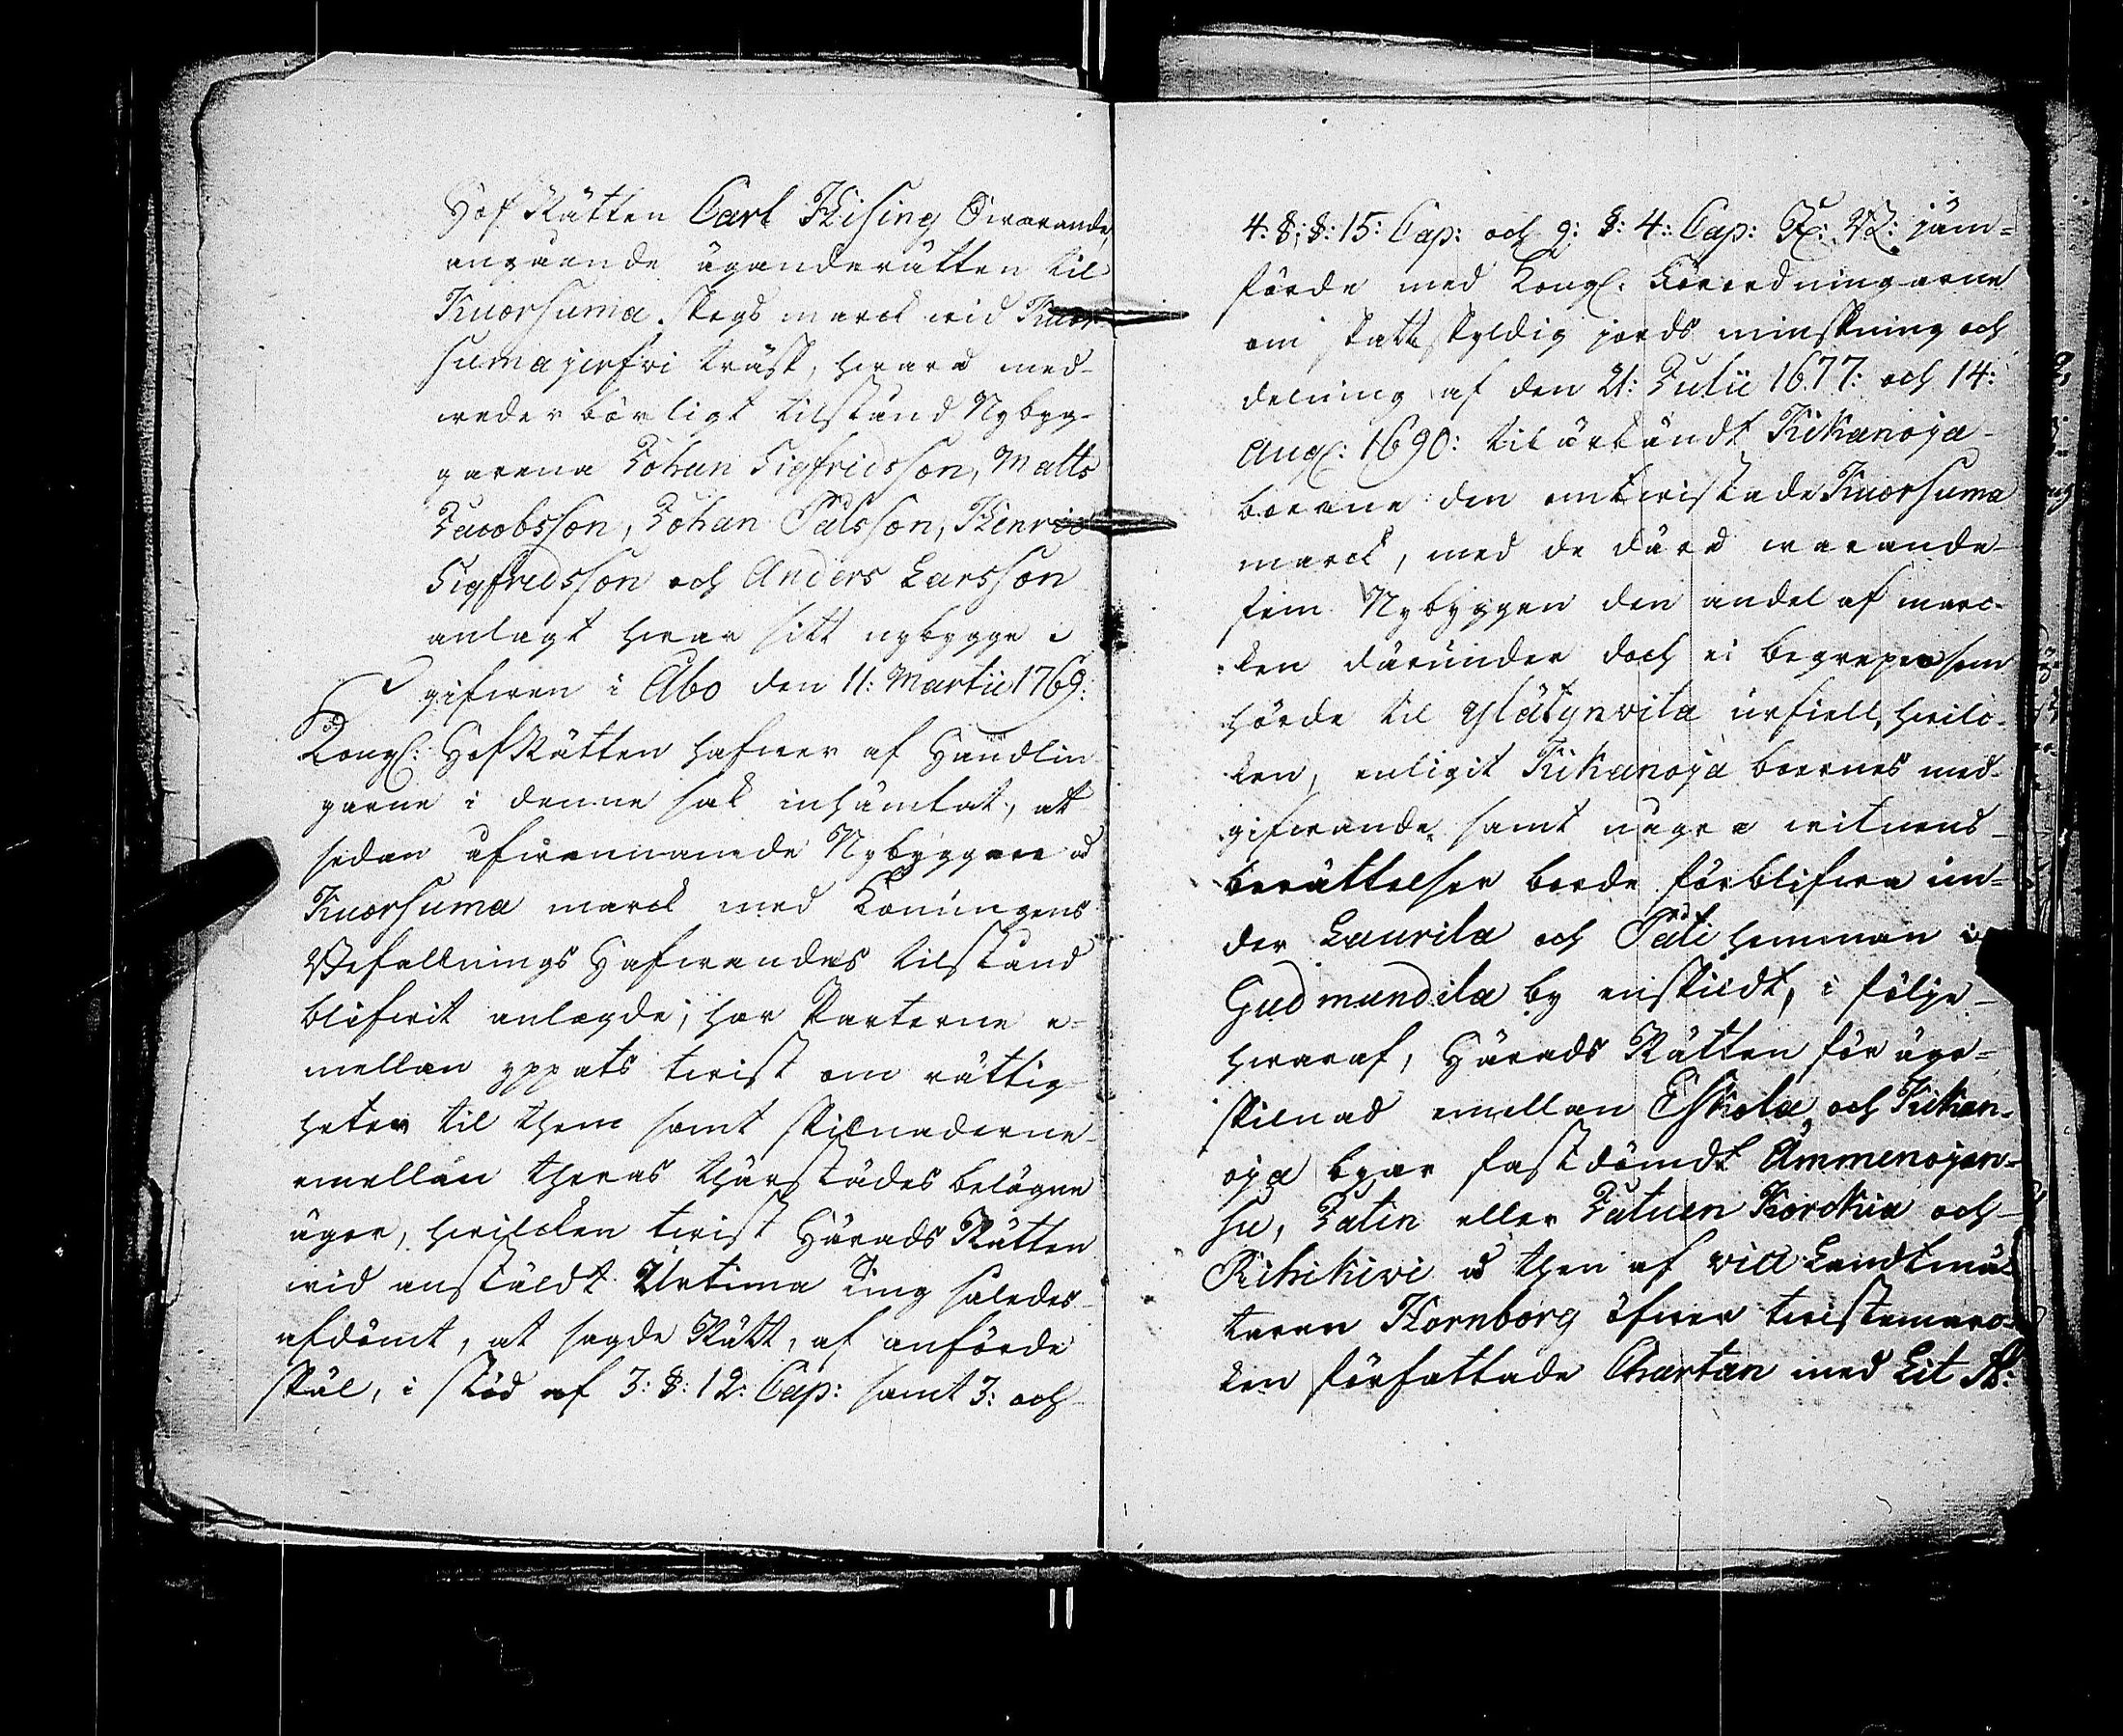 HofRätten Carl Hising Swarande,
angående äganderätten til
Kuorsuma skogs marck wid Kuor-
sumajerfwi träsk, hwarå med
wederbörligt tilstånd Nybyg-
garena Johan Sigfridsson, Matts
Jacobsson, Johan Pålsson, Henric
Sigfridsson och Anders Larsson
anlagt hwar sitt nybygge;
gifwen i Åbo den 11: Martii 1769:
Kongl: HofRätten hafwer af Handlin
garne i denne sak inhämtat, at
sedan ofwannämde Nybyggare å
Kuorsuma marck med Konungens
Befallnings Hafwandes tilstånd
blifwit anlagde, har Parterne e-
mellan yppats twist om rättig-
heten til them samt skilnaderne
emellan theras thärstädes belägne
ägor, hwilcken twist Härads Rätten
wid anstäldt Urtima Ting således
afdömt, at sagde Rätt, af anförde
skäl, i stöd af 3: §: 12: Cap: samt 3: och
4: §: §: 15: Cap: och 9: §: 4: Cap: J: B: jäm-
förde med Kongl: Förordningarne
om skatteskyldig jords minskning och
delning af den 21: Julii 1677: och 14:
Aug: 1690: tilärkändt Kikanoja
boerne den omtwistade Kuorsuma
marck, med de därå warande
fem Nybyggen den andel af marc-
ken därunder doch ei begrepen som
hörde til Ylätynvila urfiell, hwilc-
ken, enligit Kikanoja boernes med-
gifwande samt någre witnens
berättelser borde förblifwa un-
der Laurila och Påti hemman i
Gudmundila by enskildt, i följe
hwaraf, Härads Rätten för ägo-
skilnad emellan Eskola och Kikan-
oja byar fastdömdt Ammenojan-
su, Jatin eller Jatuen Korckia och
Rihikivi å then af vice Landtmä-
taren Hornborg öfwer twistemarc-
ken författade Chartan med Lit A: